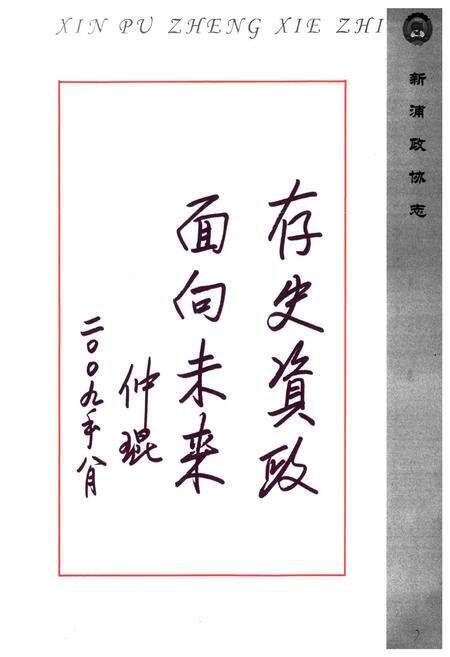 XIN PU ZHENG XIE ZHI
新浦政协志
存史資政
面向未来
仲琨
二〇〇九年八月